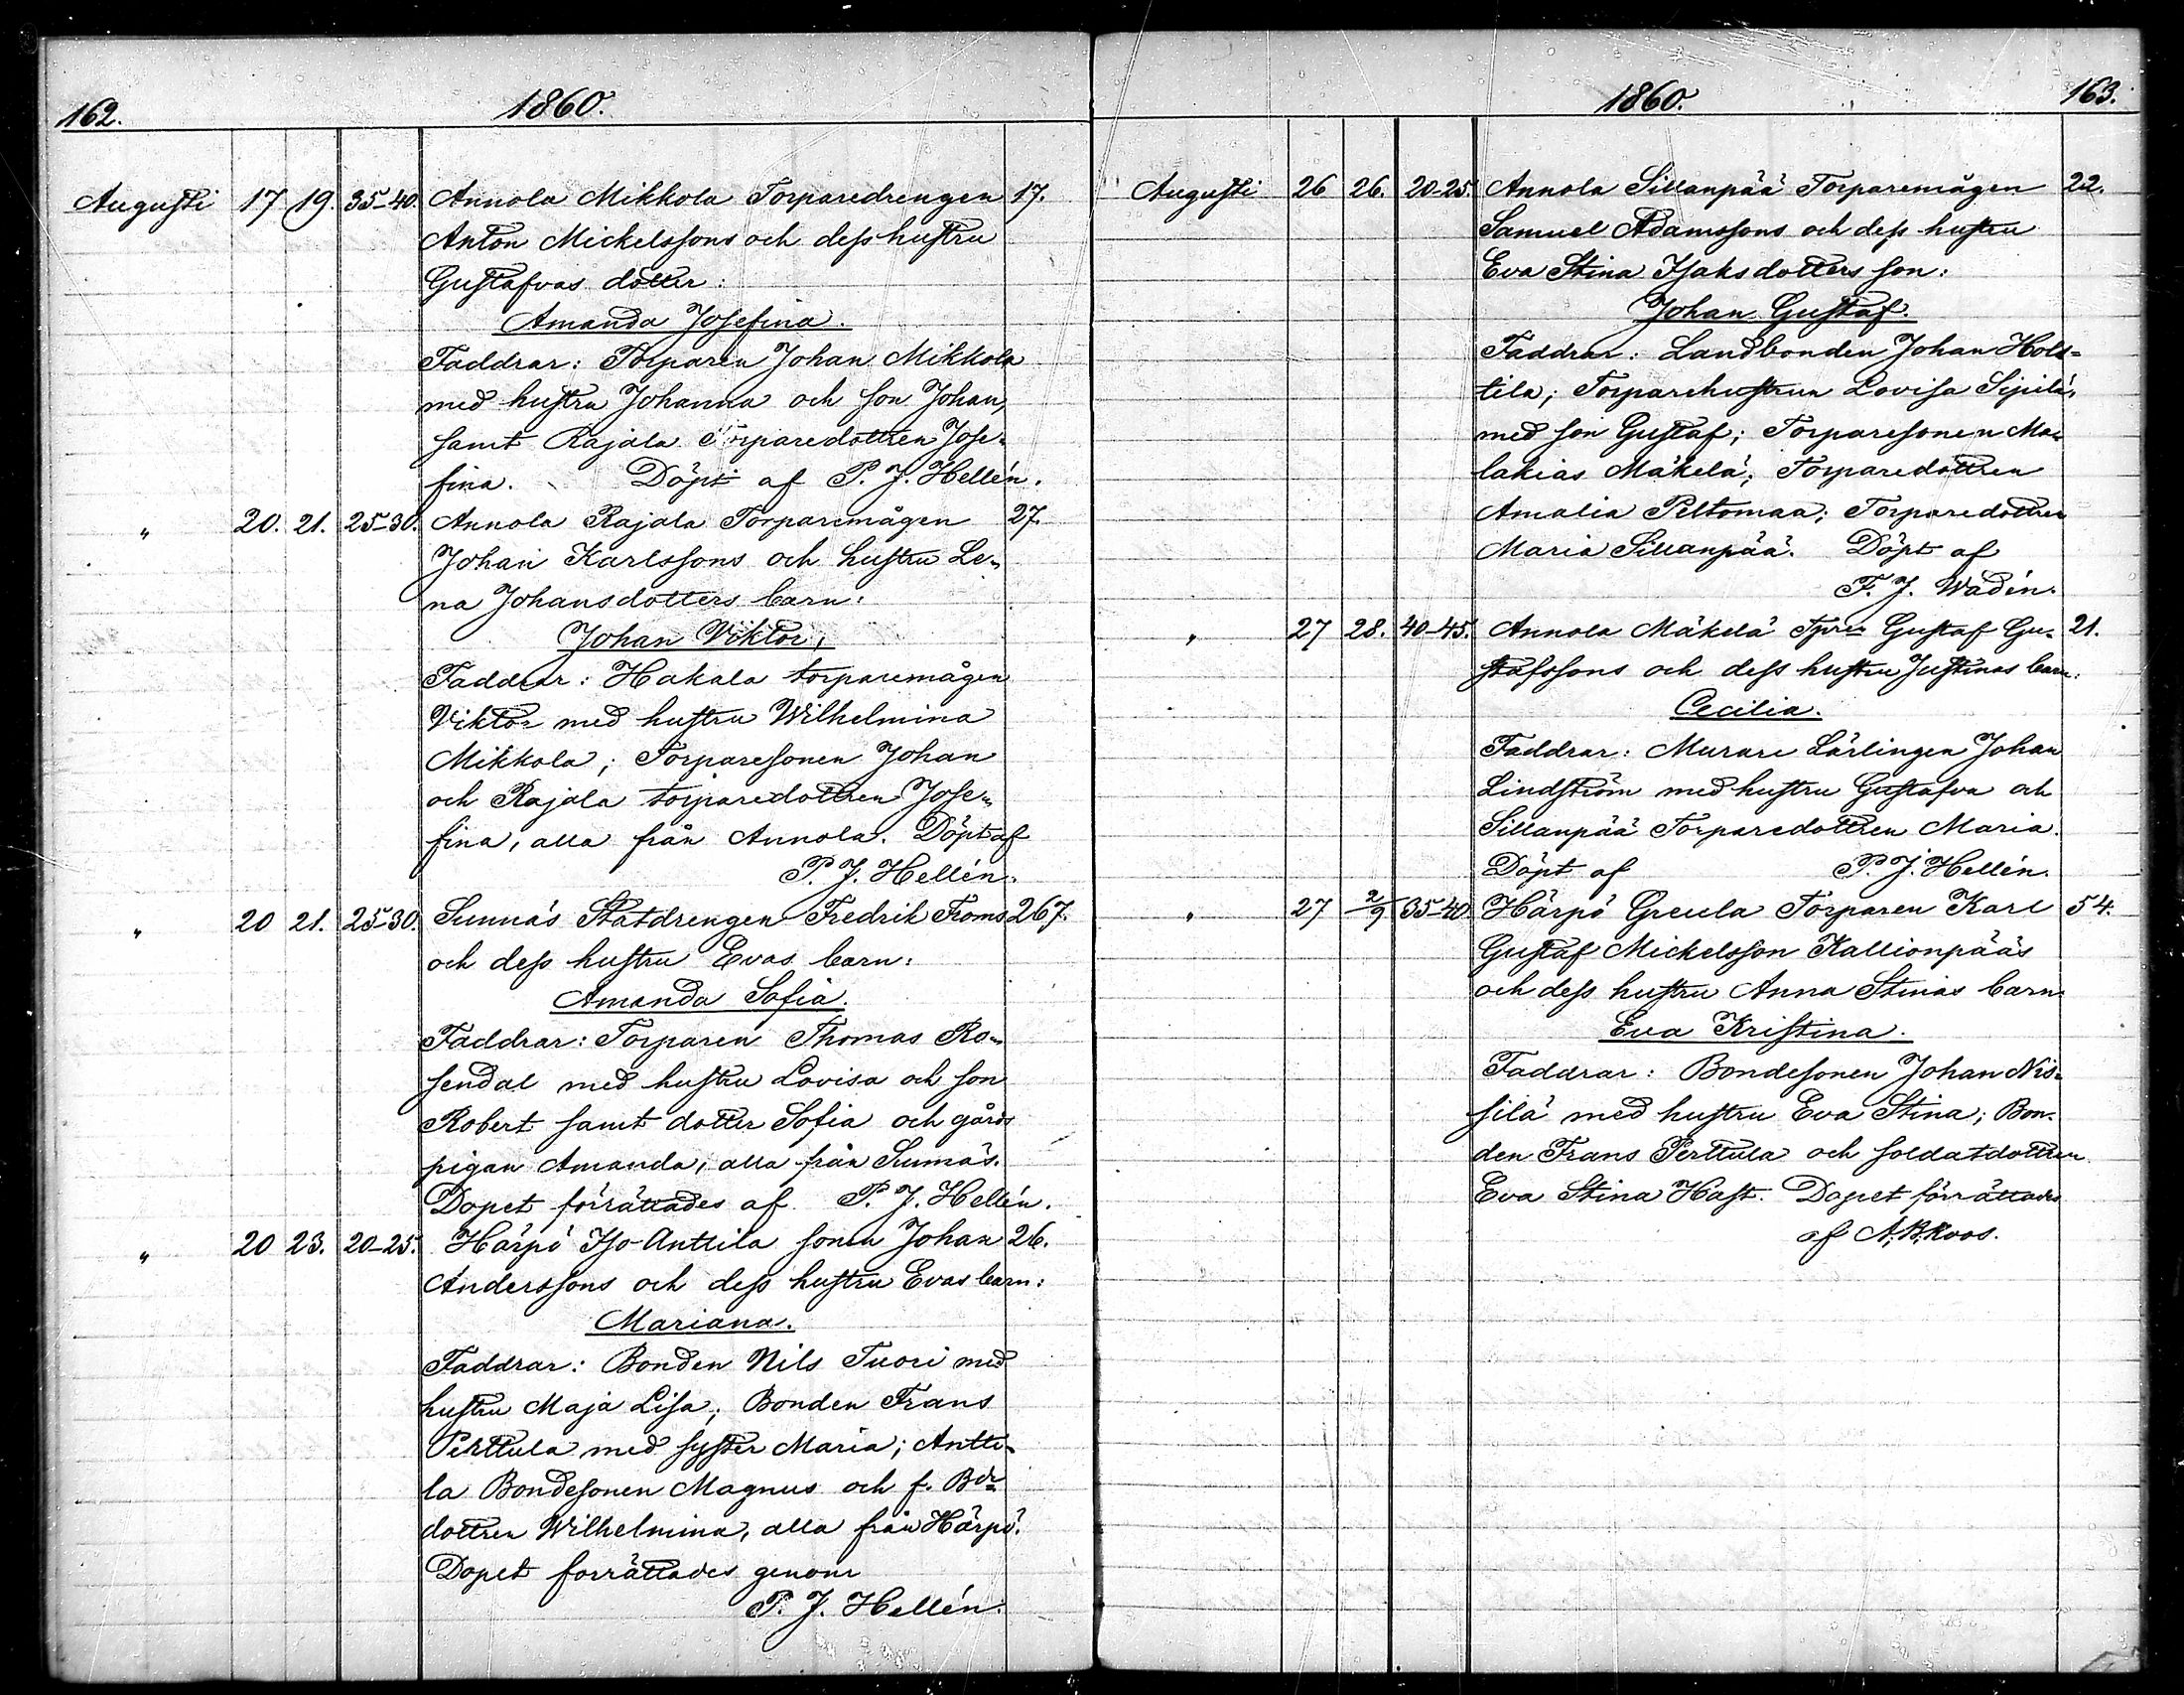 162.
1860.
Augusti 17 19. 35-40. Annola Mikkola Torparedrengen 17.
Anton Mickelssons och dess hustru
Gustafvas dotter:
Amanda Josefina.
Faddrar: Torparen Johan Mikkola
med hustru Johanna och son Johan,
samt Rajala Torparedottren Jose-
fina. Döpt af P. J. Hellén.
" 20. 21. 25-30. Annola Rajala Torparemågen 27.
Johan Karlssons och hustru Le-
na Johansdotters barn:
Johan Viktor,
Faddrar: Hakala torparemågen
Viktor med hustru Wilhelmina
Mikkola; Torparesonen Johan
och Rajala torparedottren Jose-
fina, alla från Annola. Döpt af
P. J. Hellén.
" 20 21. 25-30. Sunnäs Statdrengen Fredrik Froms 267.
och dess hustru Evas barn:
Amanda Sofia.
Faddrar: Torparen Thomas Ro-
sendal med hustru Lovisa och son
Robert samt dotter Sofia och gårds
pigan Amanda, alla från Sunnäs.
Dopet förrättades af P. J. Hellén.
" 20 23. 20-25. Härpö Iso-Anttila sonen Johan 26.
Anderssons och dess hustru Evas barn:
Mariana.
Faddrar: Bonden Nils Tuori med
hustru Maja Lisa; Bonden Frans
Perttula med syster Maria; Antti-
la Bondesonen Magnus och f. Bde
dottren Wilhelmina, alla från Härpö.
Dopet forrättades genom
P. J. Hellén.
1860.
163.
Augusti 26 26. 20-25. Annola Sillanpää Torparemågen 22.
Samuel Adamssons och dess hustru
Eva Stina Isaksdotters son:
Johan Gustaf.
Faddrar: Landbonden Johan Hold-
tila; Torparehustrun Lovisa Sipilä,
med son Gustaf; Torparesonen Ma-
lakias Mäkelä; Torparedottren
Amalia Peltomaa; Torparedottren
Maria Sillanpää. Döpt af
F. J. Wadén.
" 27 28. 40-45. Annola Mäkelä Gustaf Gu- 21.
stafssons och dess hustru Justinas barn:
Cecilia.
Faddrar: Murare Lärlingen Johan
Lindström med hustru Gustafva och
Sillanpää Torparedottren Maria.
Döpt af P. J. Hellén.
" 27 2/9 35-40 Härpö Greula Torparen Karl 54.
Gustaf Mickelsson Kallionpääs
och dess hustru Anna Stinas barn
Eva Kristina.
Faddrar: Bondesonen Johan Nis-
silä med hustru Eva Stina; Bon-
den Frans Perttula och soldatdottren
Eva Stina Hast. Dopet förrättades
af N. B. Roos.